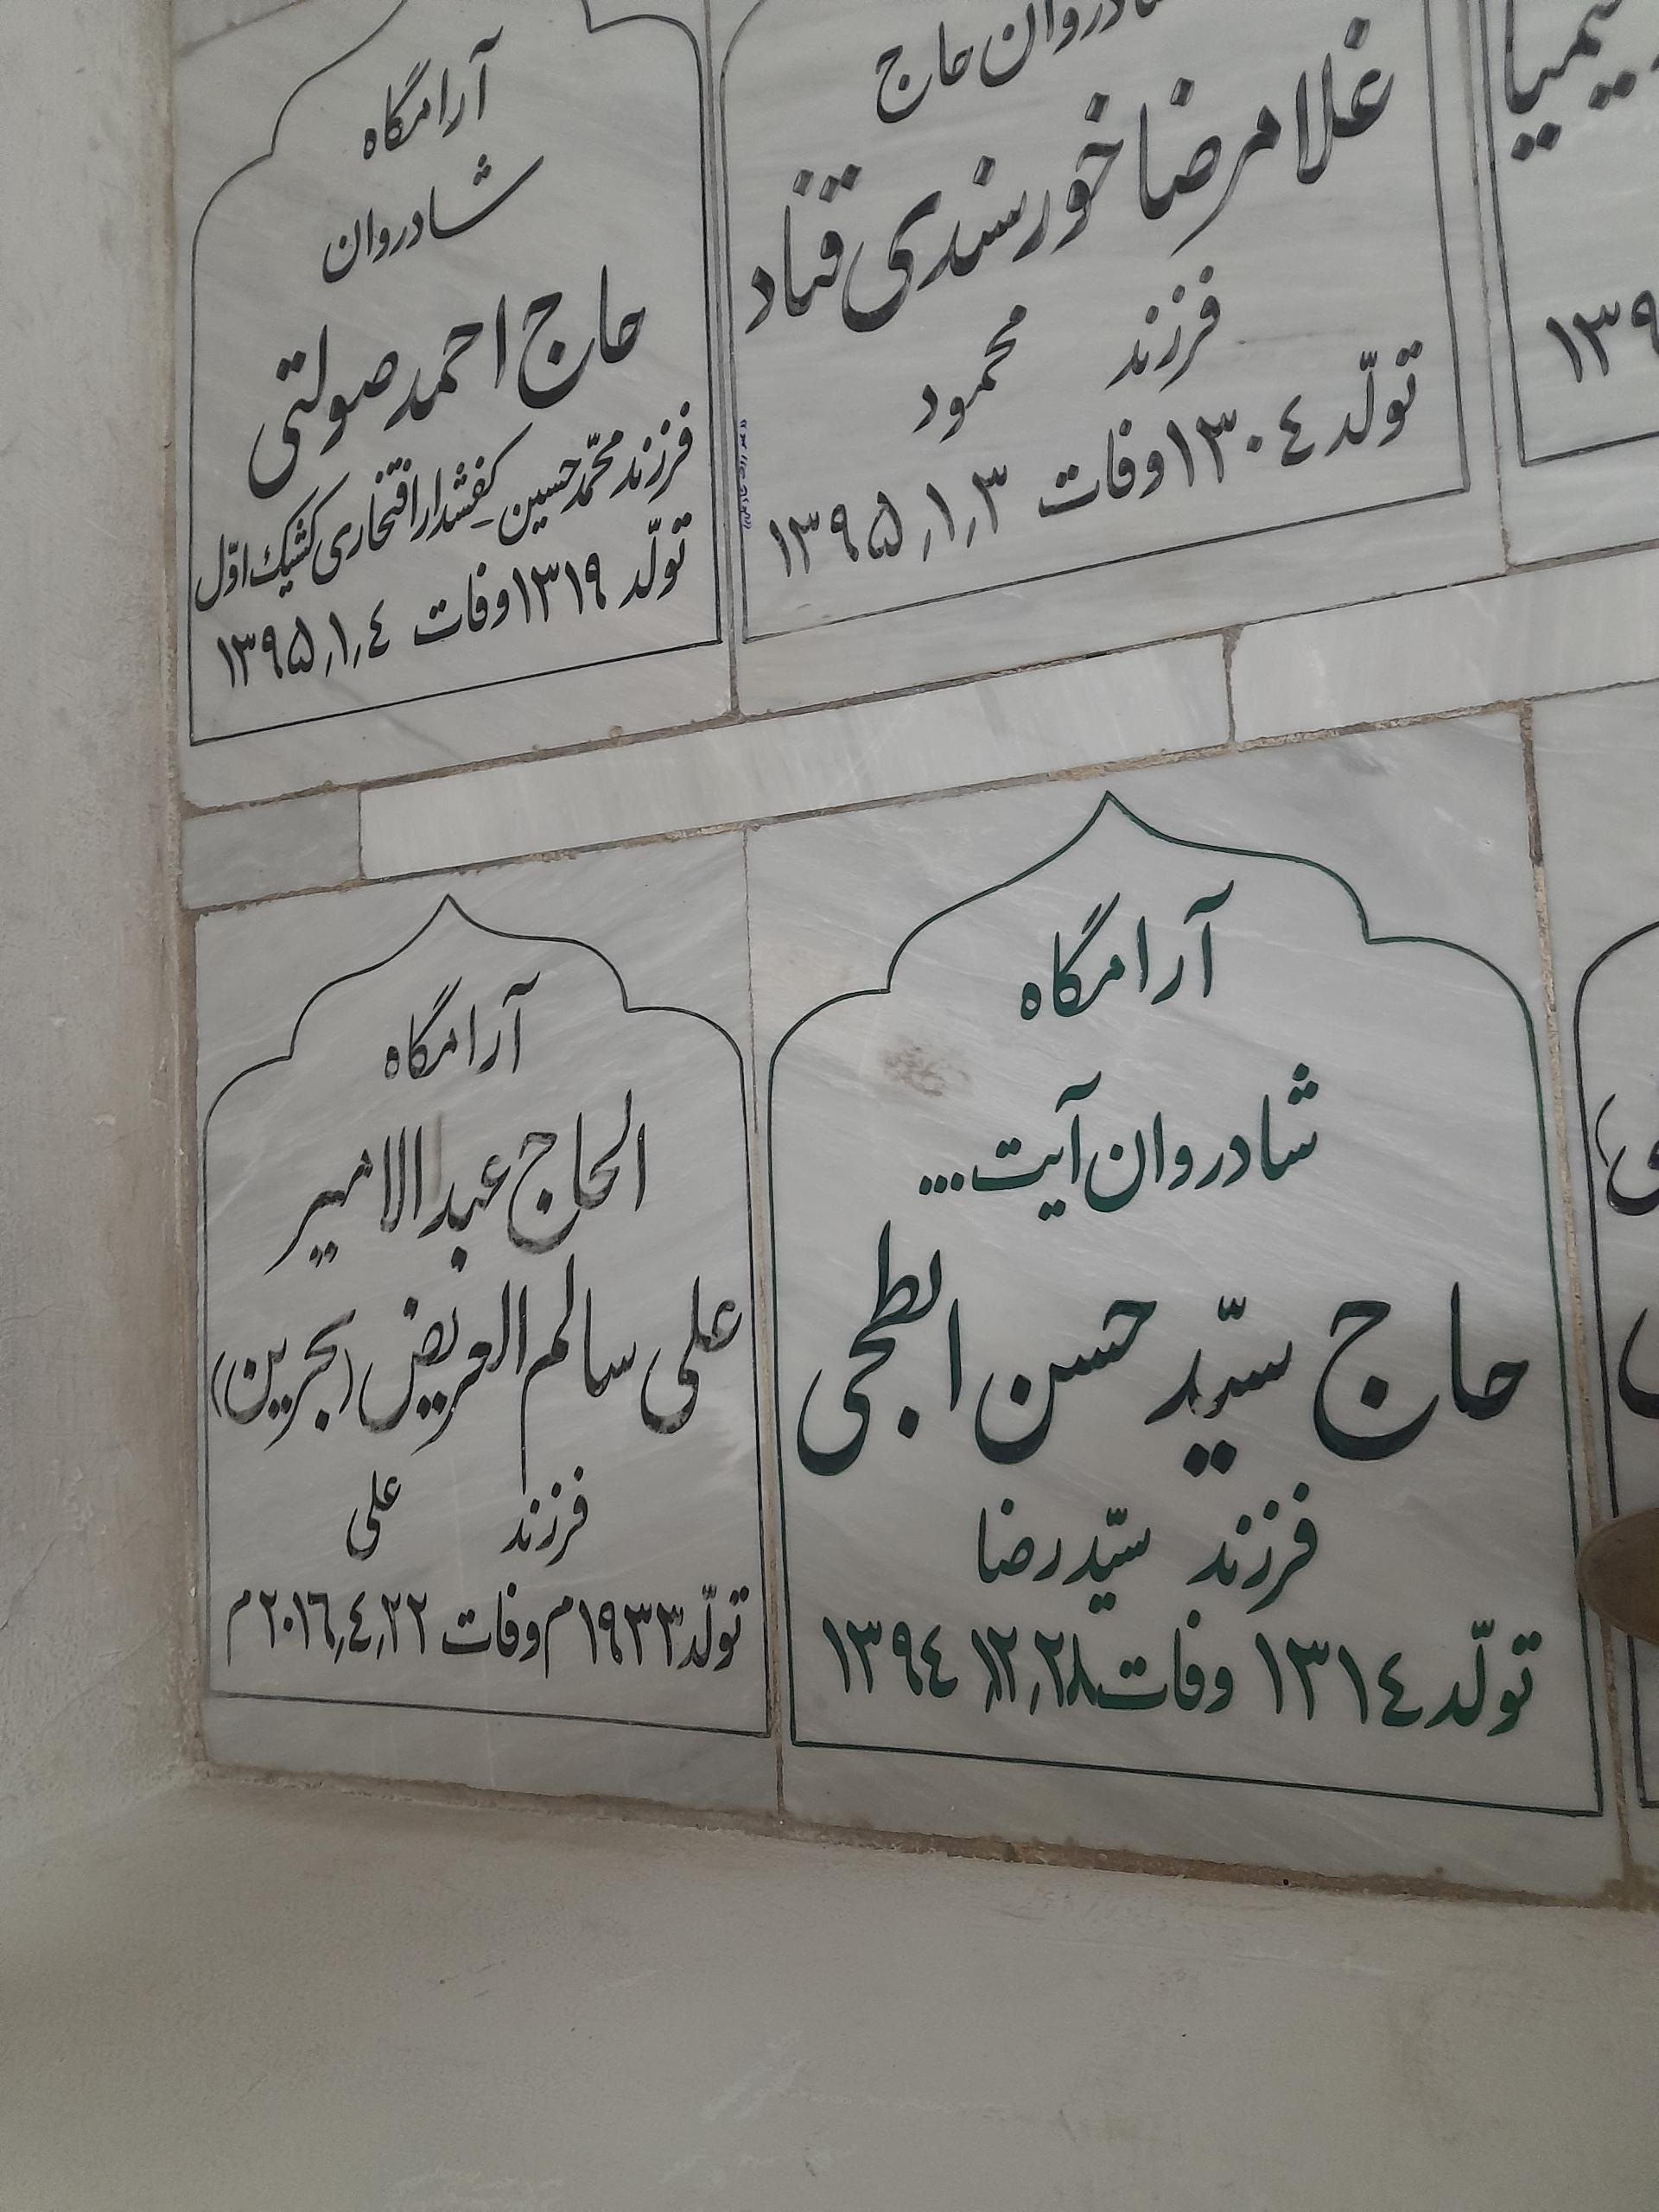 آرامگاه
شادروان
حاج احمد صولتی
فرزند محمّد حسین - کفشدار افتخاری کشیک اوّل
تولّد ۱۳۱۹ وفات ۱۳۹۵٫۱٫۴
شادروان حاج
غلامرضا خورسندی قناد
فرزند محمود
تولّد ۱۳۰۴ وفات ۱۳۹۵٫۱٫۳
آرامگاه
شادروان آیت...
حاج سیّد حسن ابطحی
فرزند سیّد رضا
تولّد ۱۳۱۴ وفات ۱۳۹۴٫۱۲٫۲۸
آرامگاه
الحاج عبدالامیر
علی سالم العریض (بحرین)
فرزند علی
تولّد ۱۹۳۳م وفات ۲۰۱۶٫۴٫۲۲م